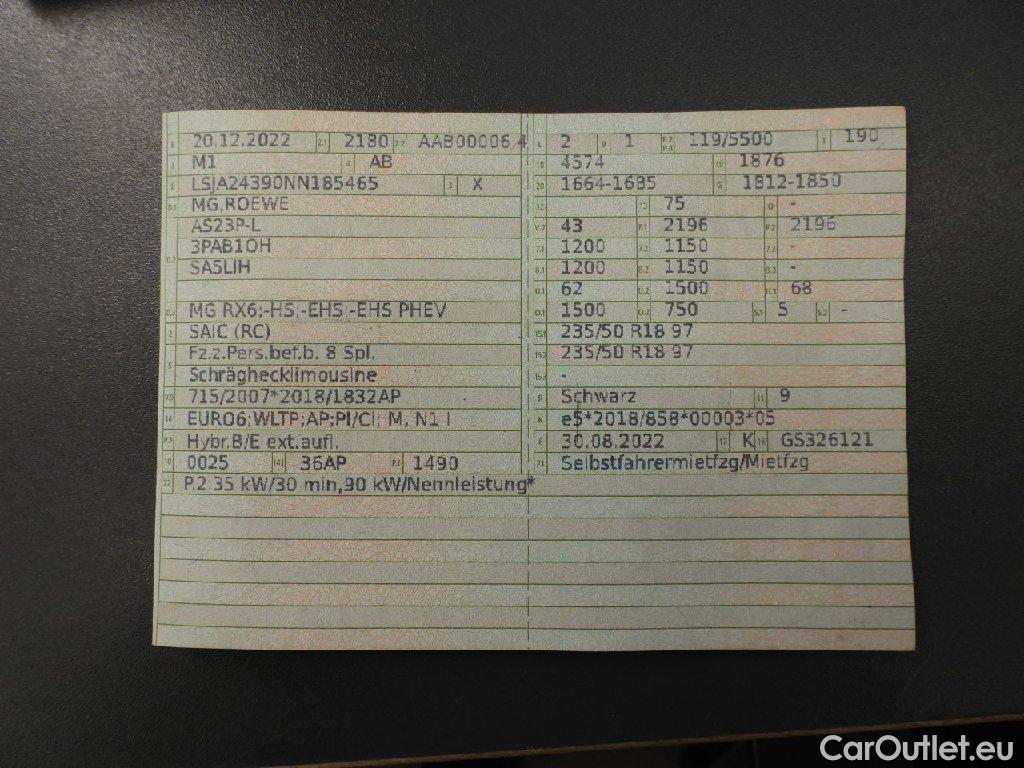 B 20.12.2022 2.1 2180 2.2 AAB00006 4 L 2 9 1 P.2 P.4 119/5500 T 190
J M1 4 AB 18 4574 19 1876
E LSJA24390NN185465 3 X 20 1664-1685 G 1812-1850
D.1 MG,ROEWE 12 - 13 75 Q -
AS23P-L V.7 43 F.1 2196 F.2 2196
D.2 3PAB1OH 7.1 1200 7.2 1150 7.3 -
SA5LIH 8.1 1200 8.2 1150 8.3 -
U.1 62 U.2 1500 U.3 68
D.3 MG RX6;-HS;-EHS;-EHS PHEV O.1 1500 O.2 750 S.1 5 S.2 -
2 SAIC (RC) 15.1 235/50 R18 97
5 Fz.z.Pers.bef.b. 8 Spl. 15.2 235/50 R18 97
Schräghecklimousine 15.3 -
V.9 715/2007*2018/1832AP R Schwarz 11 9
14 EURO6;WLTP;AP;PI/CI; M, N1 I K e5*2018/858*00003*05
P.3 Hybr.B/E ext.aufl. 6 30.08.2022 17 K 16 GS326121
10 0025 14.1 36AP P.1 1490 21 Selbstfahrermietfzg/Mietfzg
22 P.2:35 kW/30 min,90 kW/Nennleistung*
CarOutlet.eu